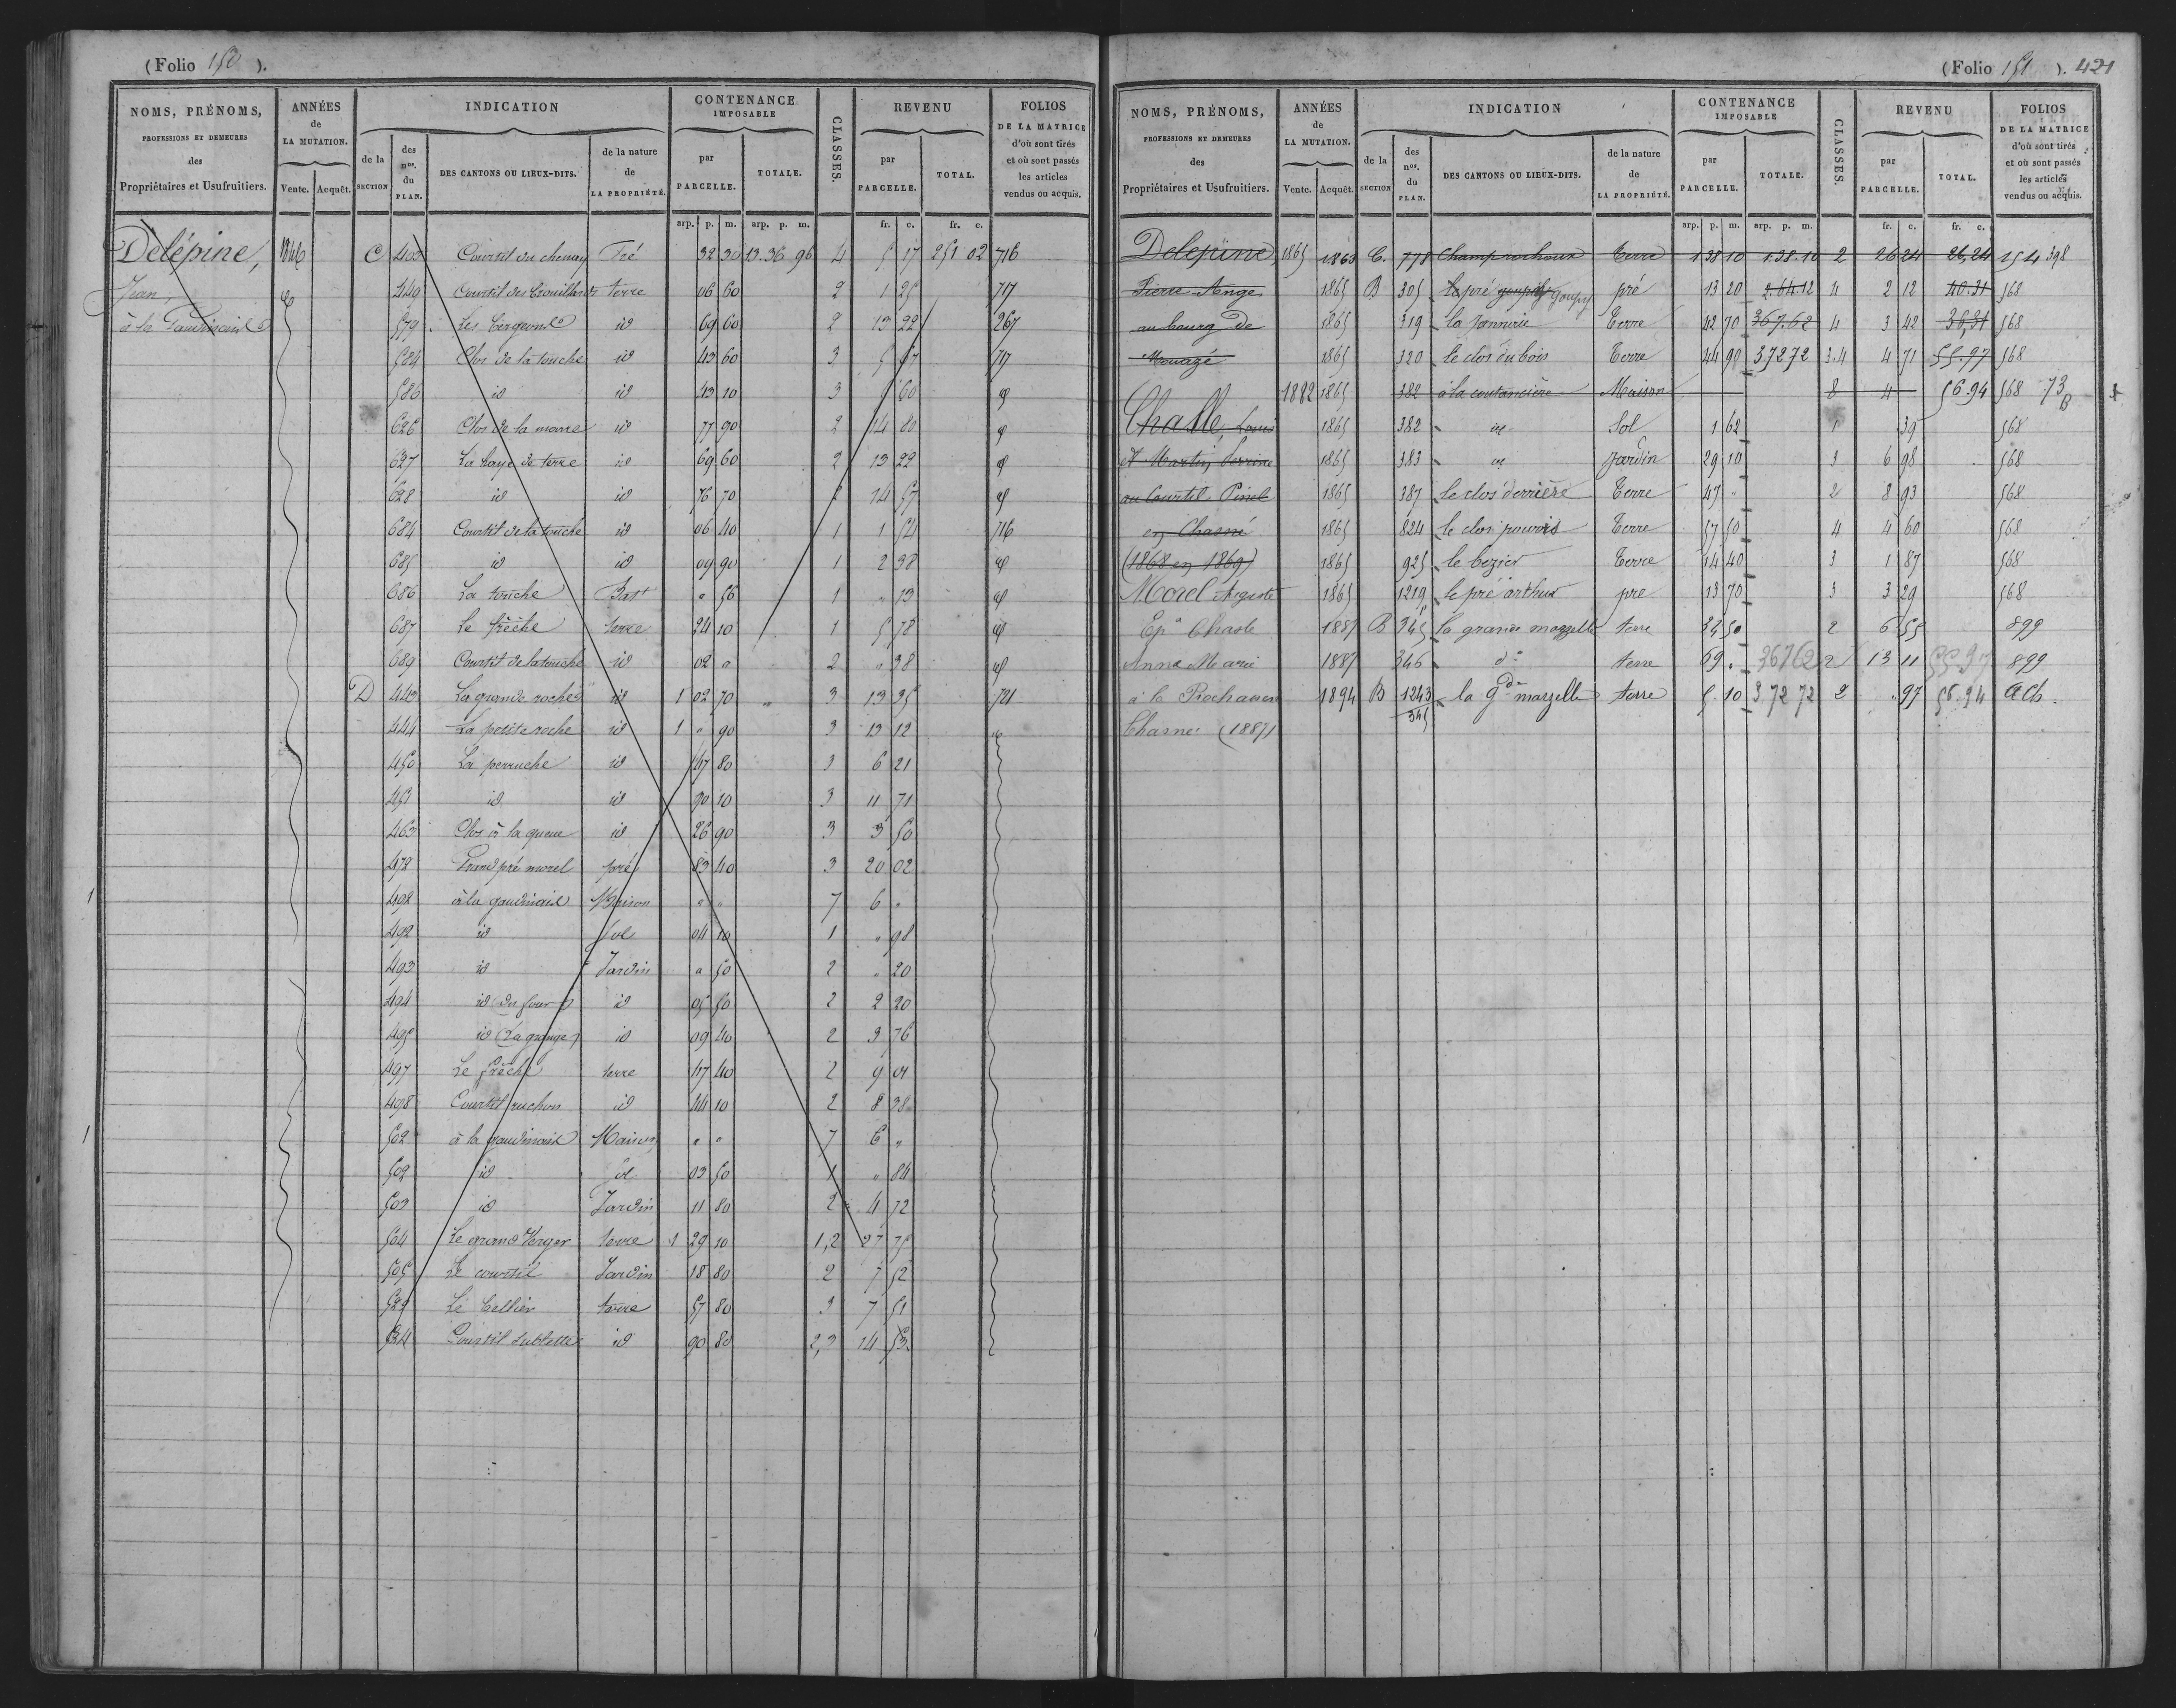 (Folio 150 ).
NOMS, PRÉNOMS, PROFESSIONS ET DEMEURES des Propriétaires et Usufruitiers.
ANNÉES de LA MUTATION. Vente. Acquêt.
INDICATION de la SECTION des nos. du PLAN. DES CANTONS OU LIEUX-DITS. de la nature de LA PROPRIÉTÉ.
CONTENANCE IMPOSABLE par PARCELLE. TOTALE.
CLASSES.
REVENU par PARCELLE. TOTAL.
FOLIOS DE LA MATRICE d'où sont tirés et où sont passés les articles vendus ou acquis.
arp. p. m. arp. p. m. fr. c. fr. c.
Delépine, 1846 C 403 Courtil du chenay Pré 32 30 13.36 96 4 5 17 251 02 716
Jean, 449 Courtil des terre 06 60 2 1 25 717
à la Gaudinaix 579 Les id 69 60 2 13 22 267
584 Clos de la touche id 43 60 3 5 67 717
586 id id 43 10 3 5 60
626 Clos de la marre id 77 90 2 14 80
627 La haye de terre id 69 60 2 13 22
628 id id 76 70 2 14 57
684 Courtil de la touche id 06 40 1 1 54 716
685 id id 09 90 1 2 38
686 La touche Bat " 56 1 " 13
687 Le frêche terre 24 10 1 5 78
689 Courtil de la touche id 02 " 2 " 38
D 443 La grande roche id 1 02 70 " 3 13 35 721
444 La petite roche id 1 " 90 3 13 12
450 La perruche id 47 80 3 6 21
453 id id 90 10 3 11 71
463 Clos à la queue id 26 90 3 3 50
478 Grand pré morel pré 83 40 3 20 02
1 492 à la gaudinaix Maison " " 7 6 "
492 id Sol 04 10 1 " 98
493 id Jardin " 50 2 " 20
494 id (du four) id 05 50 2 2 20
495 id (La grange) id 09 40 2 3 76
497 Le frêche terre 47 40 2 9 01
498 Courtil ruchon id 44 10 2 8 38
1 502 à la gaudinaix Maison " " 7 6 "
502 id Sol 03 50 1 " 84
503 id Jardin 11 80 2 4 72
504 Le grand Verger terre 1 29 10 1,2 27 75
505 Le courtil Jardin 18 80 2 7 52
529 Le Cellier terre 57 80 3 7 51
534 Courtil id 90 80 2,3 14 53
(Folio 151 ). 421
NOMS, PRÉNOMS, PROFESSIONS ET DEMEURES des Propriétaires et Usufruitiers.
ANNÉES de LA MUTATION. Vente. Acquêt.
INDICATION de la SECTION des nos. du PLAN. DES CANTONS OU LIEUX-DITS. de la nature de LA PROPRIÉTÉ.
CONTENANCE IMPOSABLE par PARCELLE. TOTALE.
CLASSES.
REVENU par PARCELLE. TOTAL.
FOLIOS DE LA MATRICE d'où sont tirés et où sont passés les articles vendus ou acquis.
arp. p. m. arp. p. m. fr. c. fr. c.
Delépine 1865 1863 C. 778 Champrochoux Terre 1 38 10 1.38.10 2 26 24 26,24 154 398
Pierre Ange 1865 B 305 le pré goupy pré 13 20 2.64.12 4 2 12 40.31 568
au bourg de 1865 319 la Jannerie Terre 42 70 367.62 4 3 42 36,31 568
Mouazé 1865 320 le clos du bois Terre 44 90 3.72 72 3.4 4 71 55.97 568
1882 1865 382 à la coutancière Maison 8 4 56.94 568 73 B +
Chasle, Louis 1865 382 id Sol 1 62 1 39 568
et Martin Perrine 1865 383 id Jardin 29 10 3 6 98 568
au Courtil Pinel 1865 387 le clos derrière Terre 47 " 2 8 93 568
en Chasné 1865 824 le clos pourris Terre 57 50 4 4 60 568
(1868 en 1869) 1865 925 le bezier Terre 14 40 3 1 87 568
Morel Auguste 1865 1219 le pré arthur pré 13 70 3 3 29 568
Epx Chasle 1887 B 345 la grande mazzelle terre 34 50 2 6 55 899
Anne Marie 1887 346 do terre 69 " 36762 2 13 11 5597 899
à la Rochaux 1894 B 1243 345 la Gde mazelle terre 5 10 3.72 72 2 " 97 56.94 a Ch.
Chasné (1887)